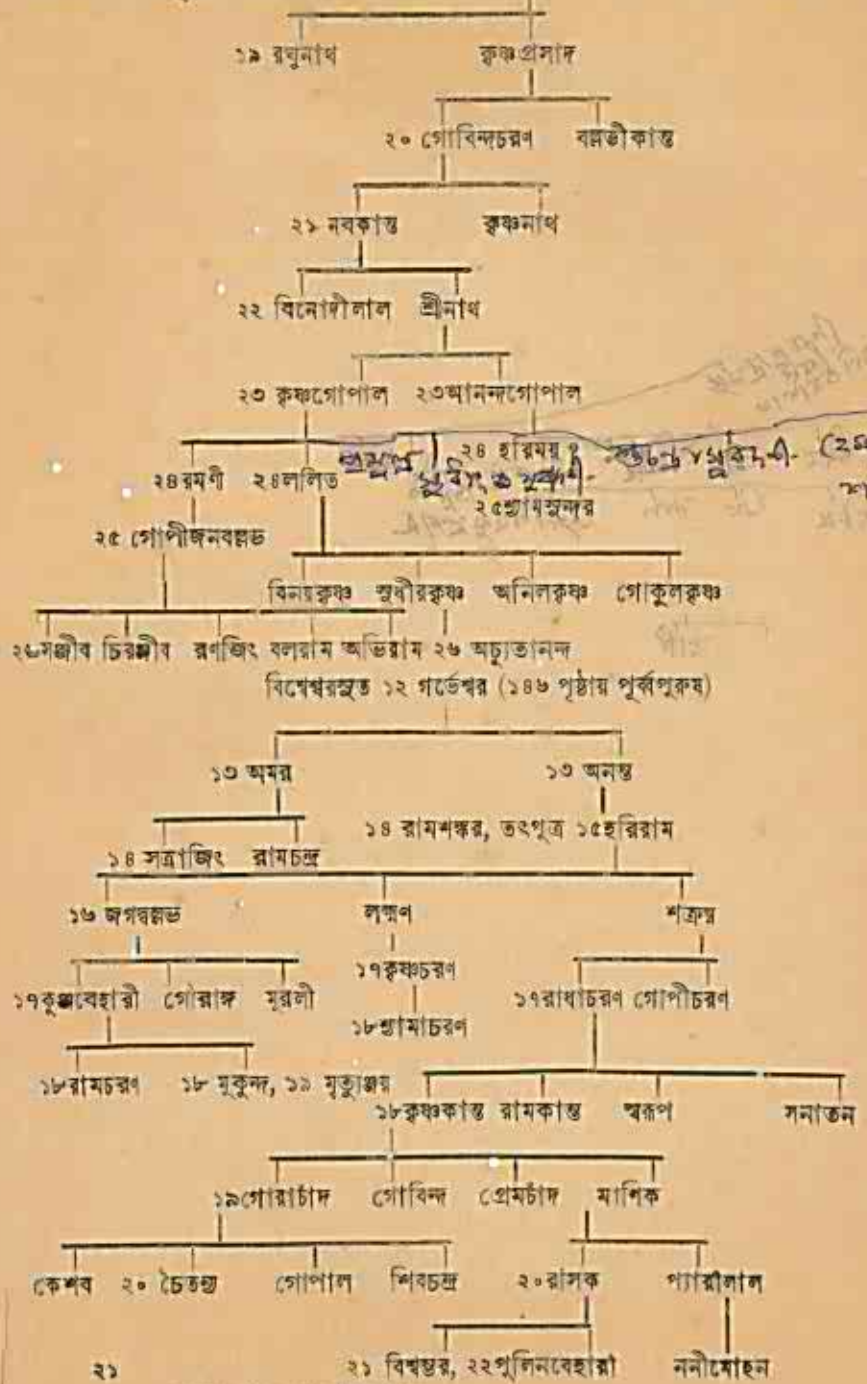 ১৯ রঘুনাথ কৃষ্ণপ্রসাদ
২০ গোবিন্দচরণ বল্লভীকান্ত
২১ নবকান্ত কৃষ্ণনাথ
২২ বিনোদীলাল শ্রীনাথ
২৩ কৃষ্ণগোপাল ২৩আনন্দগোপাল
২৪রমণী ২৪ললিত ২৪ হরিময়
২৫শ্যামসুন্দর
২৫ গোপীজনবল্লভ
বিনয়কৃষ্ণ সুধীরকৃষ্ণ অনিলকৃষ্ণ গোকুলকৃষ্ণ
২৬সঞ্জীব চিরঞ্জীব রণজিৎ বলরাম অভিরাম ২৬ অচ্যুতানন্দ
বিশ্বেশ্বরসুত ১২ গর্ভেশ্বর (১৪৬ পৃষ্ঠায় পূর্ব্বপুরুষ)
১৩ অমর ১৩ অনন্ত
১৪ রামশঙ্কর, তৎপুত্র ১৫হরিরাম
১৪ সত্রাজিৎ রামচন্দ্র
১৬ জগদ্বল্লভ লক্ষ্মণ শত্রুঘ্ন
১৭কুঞ্জবেহারী গৌরাঙ্গ মুরলী ১৭কৃষ্ণচরণ ১৭রাধাচরণ গোপীচরণ
১৮শ্যামাচরণ
১৮রামচরণ ১৮ মুকুন্দ, ১৯ মৃত্যুঞ্জয়
১৮কৃষ্ণকান্ত রামকান্ত স্বরূপ সনাতন
১৯গোরাচাঁদ গোবিন্দ প্রেমচাঁদ মাণিক
কেশব ২০ চৈতন্য গোপাল শিবচন্দ্র ২০রসিক প্যারীলাল
২১ ২১ বিশ্বম্ভর, ২২পুলিনবেহারী ননীমোহন